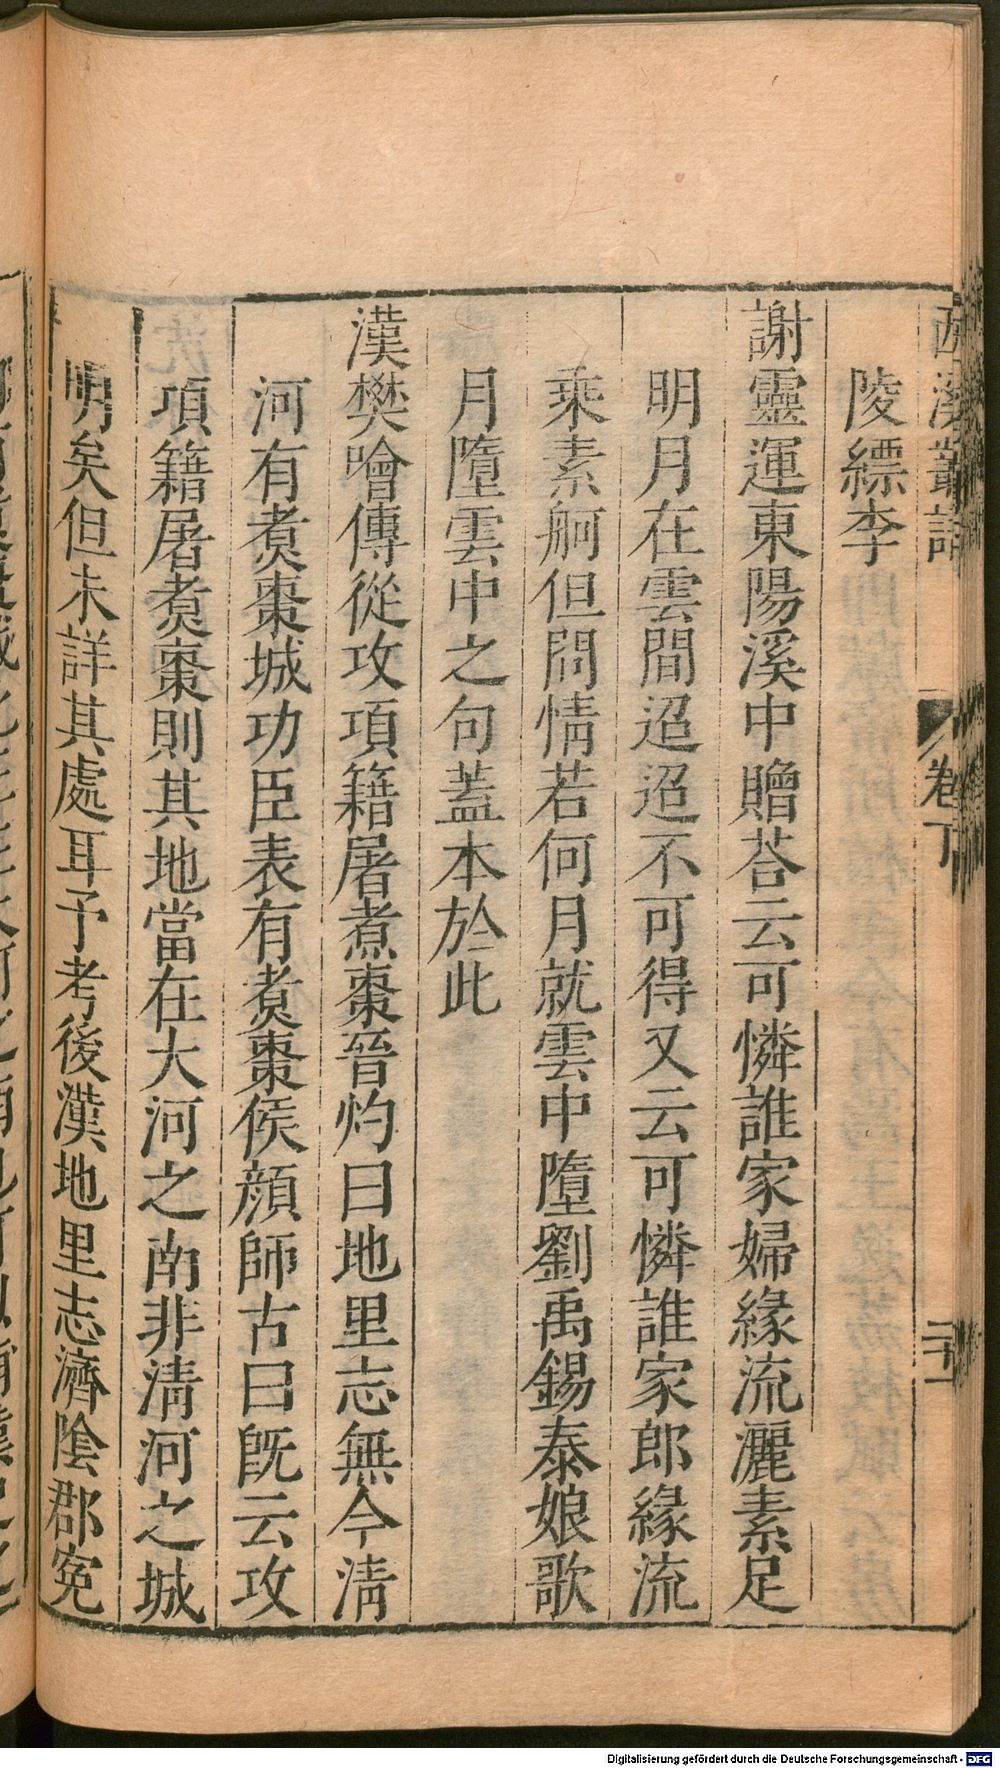 西溪叢語 卷下 二十一
陵縹李
謝靈運東陽溪中贈荅云可憐誰家婦緣流灑素足
明月在雲間迢迢不可得又云可憐誰家郎緣流
乘素舸但問情若何月就雲中墮劉禹錫泰娘歌
月墮雲中之句蓋本於此
漢樊噲傳從攻項籍屠煮棗晉灼曰地里志無今淸
河有煑棗城功臣表有煑棗侯顔師古曰旣云攻
項籍屠煑棗則其地當在大河之南非淸河之城
明矣但未詳其處耳予考後漢地里志濟隂郡寃
Digitalisierung gefördert durch die Deutsche Forschungsgemeinschaft - DFG